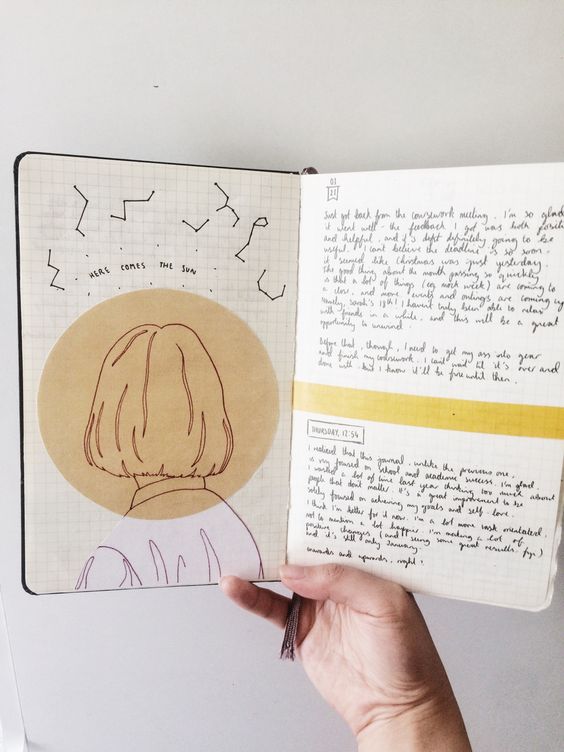 HERE COMES THE SUN
01
21
Just got back from the coursework meeting. I'm so glad
it went well - the feedback I got was both positive
and helpful, and it's definitely going to be
useful. I can't believe the deadline is so soon -
it seemed like Christmas was just yesterday.
The good thing about the month passing so quickly
is that a lot of things (eg mock week) are coming to
a close, and more events and outings are coming up
Namely, Sarah's 18th! I haven't truly been able to relax
with friends in a while, and this will be a great
opportunity to unwind.
Before that, though, I need to get my ass into gear
and finish my coursework. I can't wait til it's over and
done with - but I know it'll be fine until then.
THURSDAY, 12:54
I noticed that this journal, unlike the previous one,
is my focused on school and academic success. I'm glad.
I wasted a lot of time last year thinking too much about
people that don't matter. It's a great improvement to be
solely focused on achieving my goals and self-love.
I think I'm better for it now. I'm a lot more task orientated,
not to mention a lot happier. I'm making a lot of
positive changes (and seeing some great results, fyi)
and it's still only January.
onwards and upwards, right?